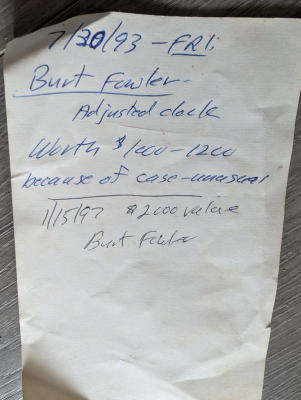 7/30/93 - FRI.
Burt Fowler -
Adjusted clock
Worth $1000-1200
because of case-unusual
1/15/97 $2000 value
Burt Fowler